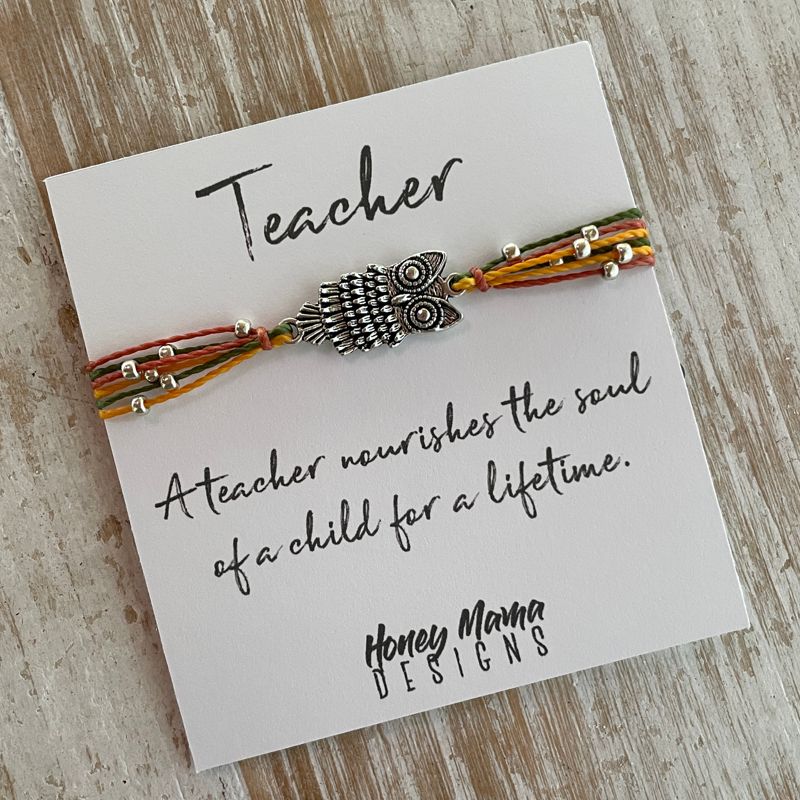 Teacher
A teacher nourishes the soul
of a child for a lifetime.
Honey Mama
DESIGNS